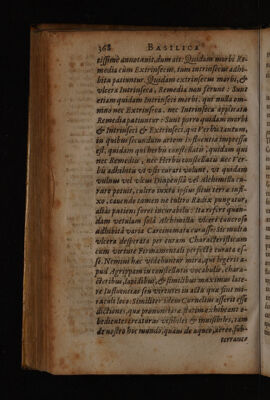 368 BASILICA
tissimè annotavit, dum ait: Quidam morbi Re-
media cùm Extrinsecus, tum intrinsecus adhi-
bita patiuntur. Quidam extrinsecus morbi, &
ulcera Intrinseca, Remedia non ferunt: Sunt
etiam quidam Intrinseci morbi, qui nulla om-
nino nec Extrinseca, nec Intrinseca applicata
Remedia patiuntur: Sunt porrò quidam morbi
& Intrinseci & Extrinseci, qui Verbis tantum,
in quibus secundum artem Influentia impressa
est: quidam qui herbis constellatis; quidam qui
nec Remediis, nec Herbis constellatis nec Ver-
bis adhibitis
vulnus vel ulcus
rare potuit, cultro iuxta ipsius situm terræ infi-
xo, cavendo tamen ne intro Radix pungatur,
aliàs patiens foret incurabilis: Ita refert quan-
dam vetulam solâ Alchimillâ ulceri cancroso
adhibitâ variis Carcinomata curasse: Sic multa
ulcera desperata per curam Characteristicam
cum virtute Firmamentali perfectè curata es-
se. Nemini hæc videbuntur mira, qui legerit a-
pud Agrippam in constellatis vocabulis, chara-
cteribus, lapidibus, & similibus maximas late-
re Influentias seu virtutes in alta quæ sint mi-
raculi loco: Similiter idem Cornelius asserit esse
dictiones, quæ pronunciatæ statim exhibeant o-
bedientes creaturas visibiles & invisibiles, tam
de nostro hoc mundo, quàm de aqueo, aëreo, sub-
terraneo